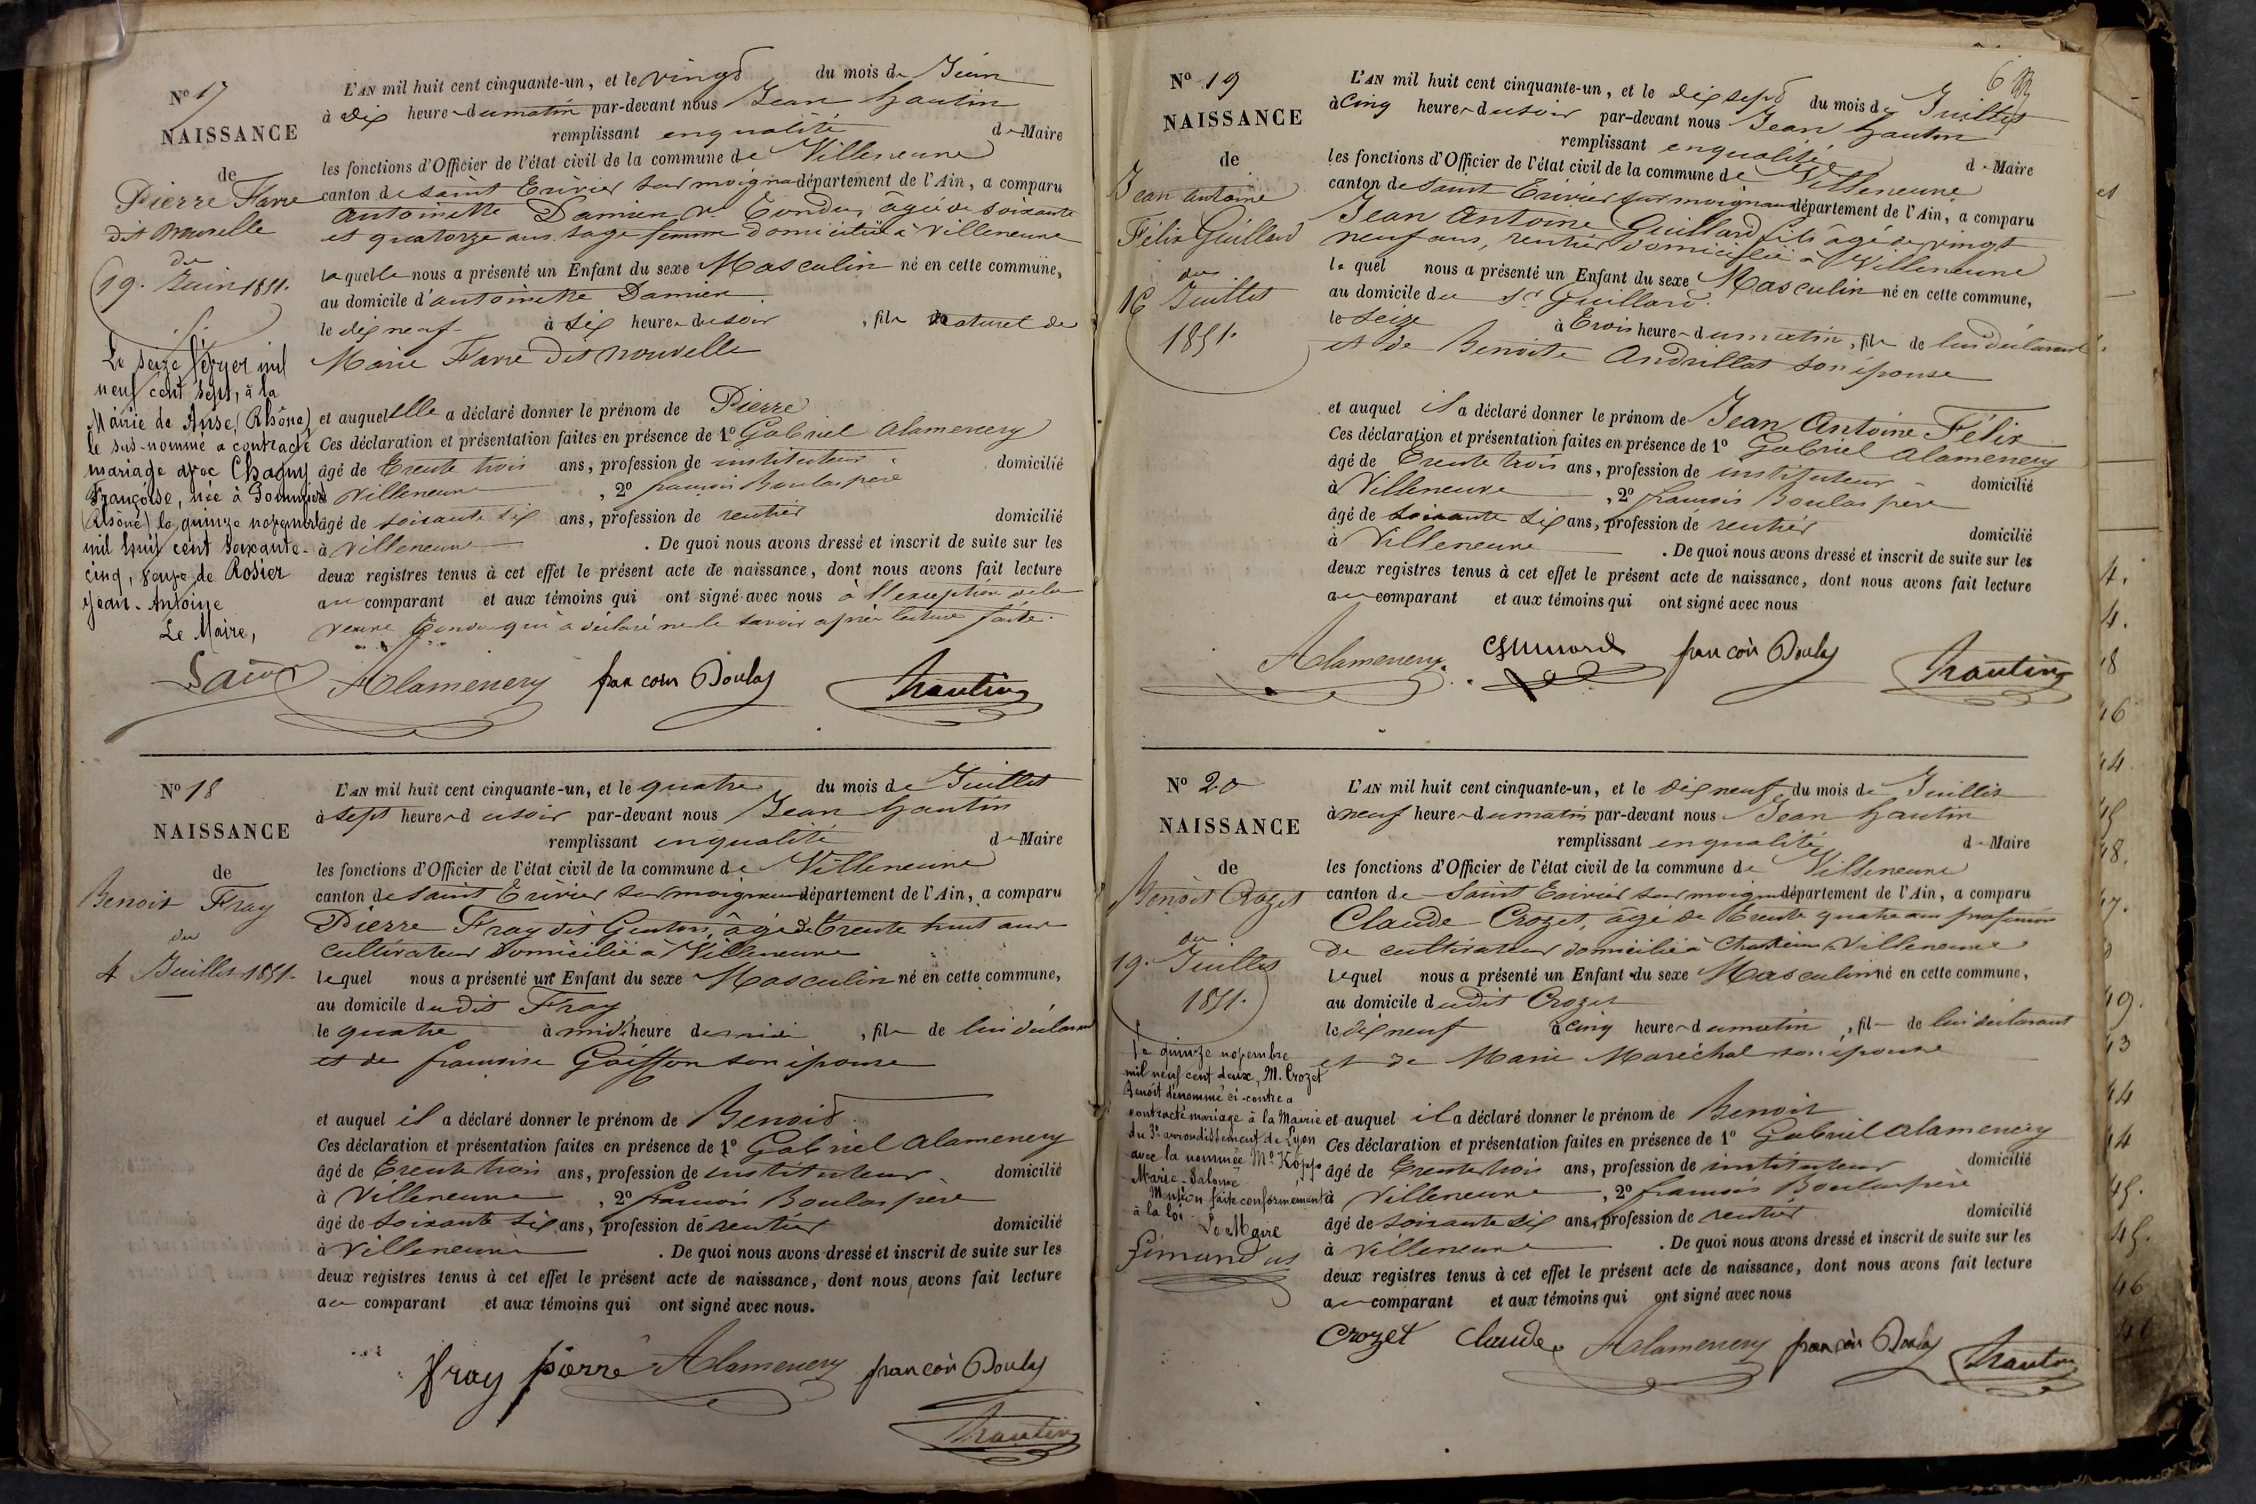 No 17
NAISSANCE
de
Pierre Favre
dit nouvelle
du
19. Juin 1851.
Le seize février mil
neuf cent sept, à la
Mairie de Anse (Rhône)
le sus-nommé a contracté
mariage avec Chagny
Françoise, née à
(Rhône) le quinze novembre
mil huit cent soixante-
cinq, veuve de Rosier
Jean-Antoine
Le Maire,
L'AN mil huit cent cinquante-un, et le vingt du mois de Juin
à dix heures du matin par-devant nous Jean Gautin
remplissant en qualité de Maire
les fonctions d'Officier de l'état civil de la commune de Villeneuve
canton de saint Trivier sur moignans département de l'Ain, a comparu
antoinette Damien ve Tondu, agée de soixante
et quatorze ans sage femme domiciliée à Villeneuve
laquelle nous a présenté un Enfant du sexe Masculin né en cette commune,
au domicile d'antoinette Damien
le dix neuf à six heures du soir , fils naturel de
Marie Favre dit nouvelle
et auquel elle a déclaré donner le prénom de Pierre
Ces déclaration et présentation faites en présence de 1o Gabriel Alamenery
âgé de trente trois ans, profession de instituteur domicilié
à Villeneuve , 2o françois Boulas père
âgé de soixante six ans, profession de rentier domicilié
à Villeneuve . De quoi nous avons dressé et inscrit de suite sur les
deux registres tenus à cet effet le présent acte de naissance, dont nous avons fait lecture
au comparant et aux témoins qui ont signé avec nous à l'exception de la
veuve Tondu qui a déclaré ne le savoir après lecture faite.
Alamenery françois Boulas Gautin
No 18
NAISSANCE
de
Benoit Fray
du
4 Juillet 1851.
L'AN mil huit cent cinquante-un, et le quatre du mois de Juillet
à sept heures du soir par-devant nous Jean Gautin
remplissant en qualité de Maire
les fonctions d'Officier de l'état civil de la commune de Villeneuve
canton de saint Trivier sur moignans département de l'Ain, a comparu
Pierre Fray dit Genton, âgé de trente huit ans
cultivateur domicilié à Villeneuve
lequel nous a présenté un Enfant du sexe Masculin né en cette commune,
au domicile dudit Fray
le quatre à midi heure de midi , fils de lui déclarant
et de françoise Goiffon son épouse
et auquel il a déclaré donner le prénom de Benoit
Ces déclaration et présentation faites en présence de 1o Gabriel Alamenery
âgé de trente trois ans, profession de instituteur domicilié
à Villeneuve , 2o françois Boulas père
âgé de soixante six ans, profession de rentier domicilié
à Villeneuve . De quoi nous avons dressé et inscrit de suite sur les
deux registres tenus à cet effet le présent acte de naissance, dont nous avons fait lecture
au comparant et aux témoins qui ont signé avec nous.
fray pierre Alamenery françois Boulas
Gautin
6
No 19
NAISSANCE
de
Jean antoine
Félix Guillard
du
16 Juillet
1851.
L'AN mil huit cent cinquante-un, et le dix sept du mois de Juillet
à cinq heures du soir par-devant nous Jean Gautin
remplissant en qualité de Maire
les fonctions d'Officier de l'état civil de la commune de Villeneuve
canton de saint Trivier sur moignans département de l'Ain, a comparu
Jean Antoine Guillard fils âgé de vingt
neuf ans, rentier domicilié à Villeneuve
lequel nous a présenté un Enfant du sexe Masculin né en cette commune,
au domicile du Sr Guillard
le seize à trois heures du matin, fils de lui déclarant
et de Benoite Andrillat son épouse
et auquel il a déclaré donner le prénom de Jean Antoine Félix
Ces déclaration et présentation faites en présence de 1o Gabriel Alamenery
âgé de trente trois ans, profession de instituteur domicilié
à Villeneuve , 2o françois Boulas père
âgé de soixante six ans, profession de rentier domicilié
à Villeneuve . De quoi nous avons dressé et inscrit de suite sur les
deux registres tenus à cet effet le présent acte de naissance, dont nous avons fait lecture
au comparant et aux témoins qui ont signé avec nous
Alamenery Guillard françois Boulas Gautin
No 20
NAISSANCE
de
Benoit Crozet
du
19 Juillet
1851.
Le quinze novembre
mil neuf cent deux, M. Crozet
Benoit dénommé ci-contre a
contracté mariage à la Mairie
du 3e arrondissement de Lyon
avec la nommée Me Kopp
Marie-Salomé
Mention faite conformément
à la loi
Le Maire
L'AN mil huit cent cinquante-un, et le dix neuf du mois de Juillet
à neuf heures du matin par-devant nous Jean Gautin
remplissant en qualité de Maire
les fonctions d'Officier de l'état civil de la commune de Villeneuve
canton de Saint Trivier sur moignans département de l'Ain, a comparu
Claude Crozet, âgé de trente quatre ans profession
de cultivateur domicilié à Villeneuve
lequel nous a présenté un Enfant du sexe Masculin né en cette commune,
au domicile dudit Crozet
le dix neuf à cinq heures du matin , fils de lui déclarant
et de Marie Maréchal son épouse
et auquel il a déclaré donner le prénom de Benoit
Ces déclaration et présentation faites en présence de 1o Gabriel Alamenery
âgé de trente trois ans, profession de instituteur domicilié
à Villeneuve , 2o françois Boulas père
âgé de soixante six ans, profession de rentier domicilié
à Villeneuve . De quoi nous avons dressé et inscrit de suite sur les
deux registres tenus à cet effet le présent acte de naissance, dont nous avons fait lecture
au comparant et aux témoins qui ont signé avec nous
Crozet Claude Alamenery françois Boulas Gautin